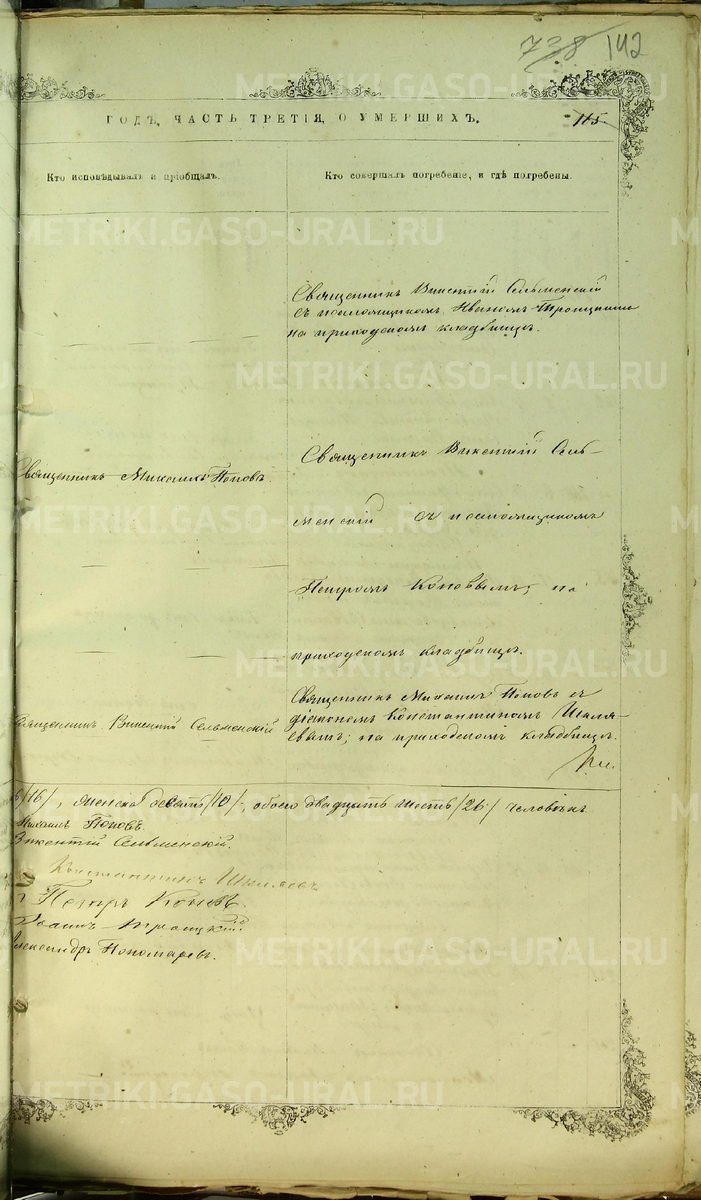 738 142
ГОДЪ, ЧАСТЬ ТРЕТІЯ, О УМЕРШИХЪ.
115.
Кто исповѣдывалъ и пріобщалъ.
Кто совершалъ погребеніе, и гдѣ погребены.
METRIKI.GASO-URAL.RU
Священникъ Викентій Сельменскій
съ псаломщикомъ Иваномъ Троицкимъ
на приходскомъ кладбищѣ.
Священникъ Михаилъ Поповъ.
Священникъ Викентій Сель-
менскій съ псаломщикомъ
Петромъ Коновымъ, на
приходскомъ кладбищѣ.
Священникъ Викентій Сельменскій
Священникъ Михаилъ Поповъ съ
діакономъ Константиномъ Шаля-
евымъ; на приходскомъ кладбищѣ.
/16/, женска десять /10/, обоего двадцать шесть /26/ человѣкъ.
Михаилъ Поповъ.
Викентій Сельменскій.
Константинъ
Петръ Коновъ.
Іоаннъ Троицкій
Александръ Пономаревъ.